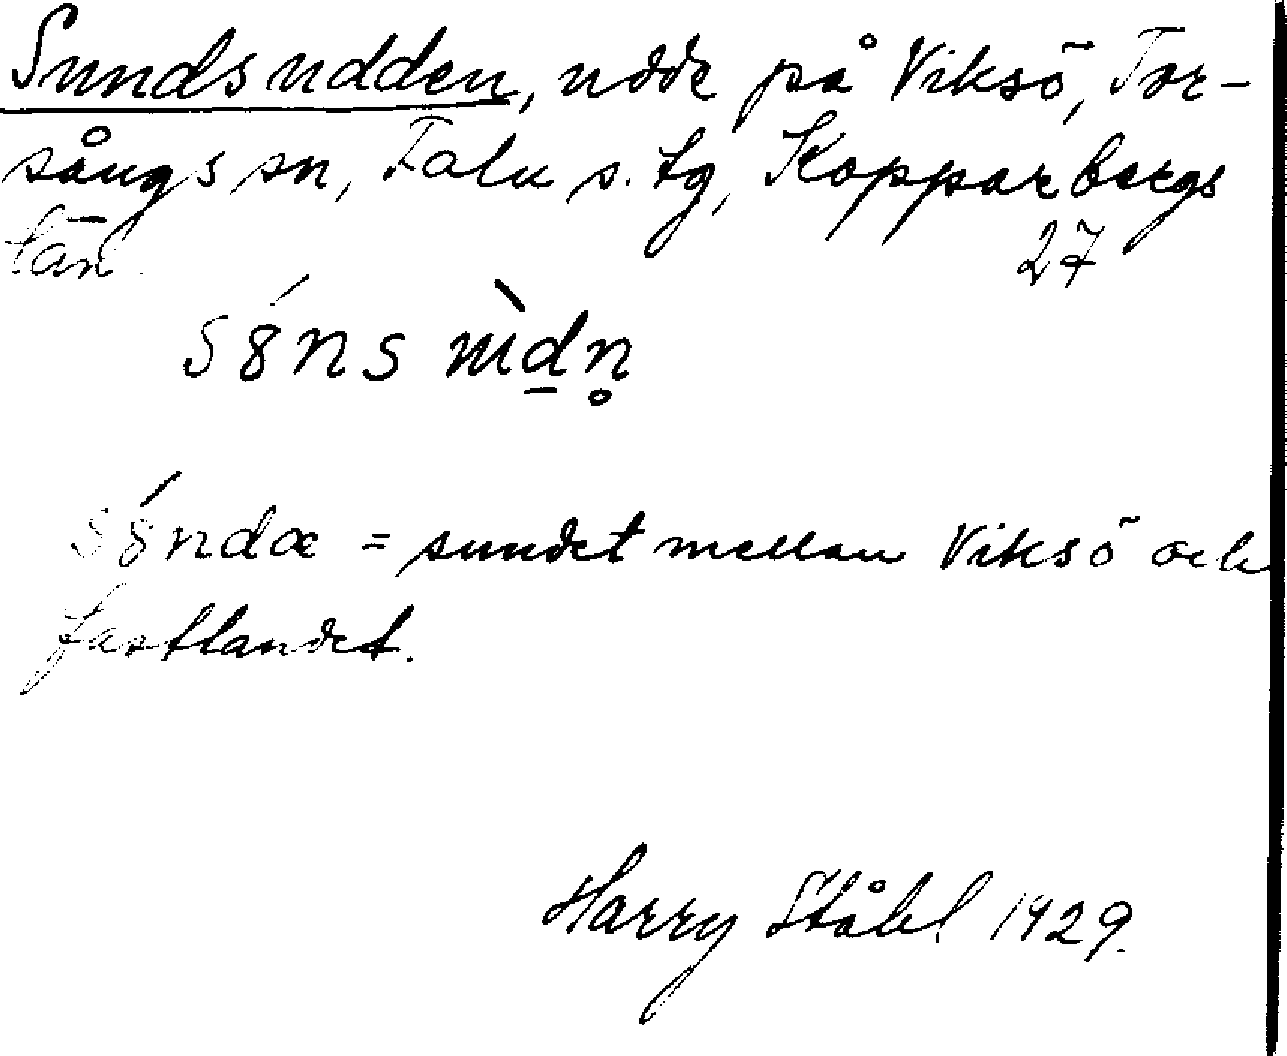 Sundsudden, udde på Viksö, Tor-
sångs sn, Falu s. tg, Kopparbergs
län. 27
sȣ́ns ɯ̀d̲n̥
sȣ́ndæ = sundet mellan Viksö och
fastlandet.
Harry Ståhl 1929.